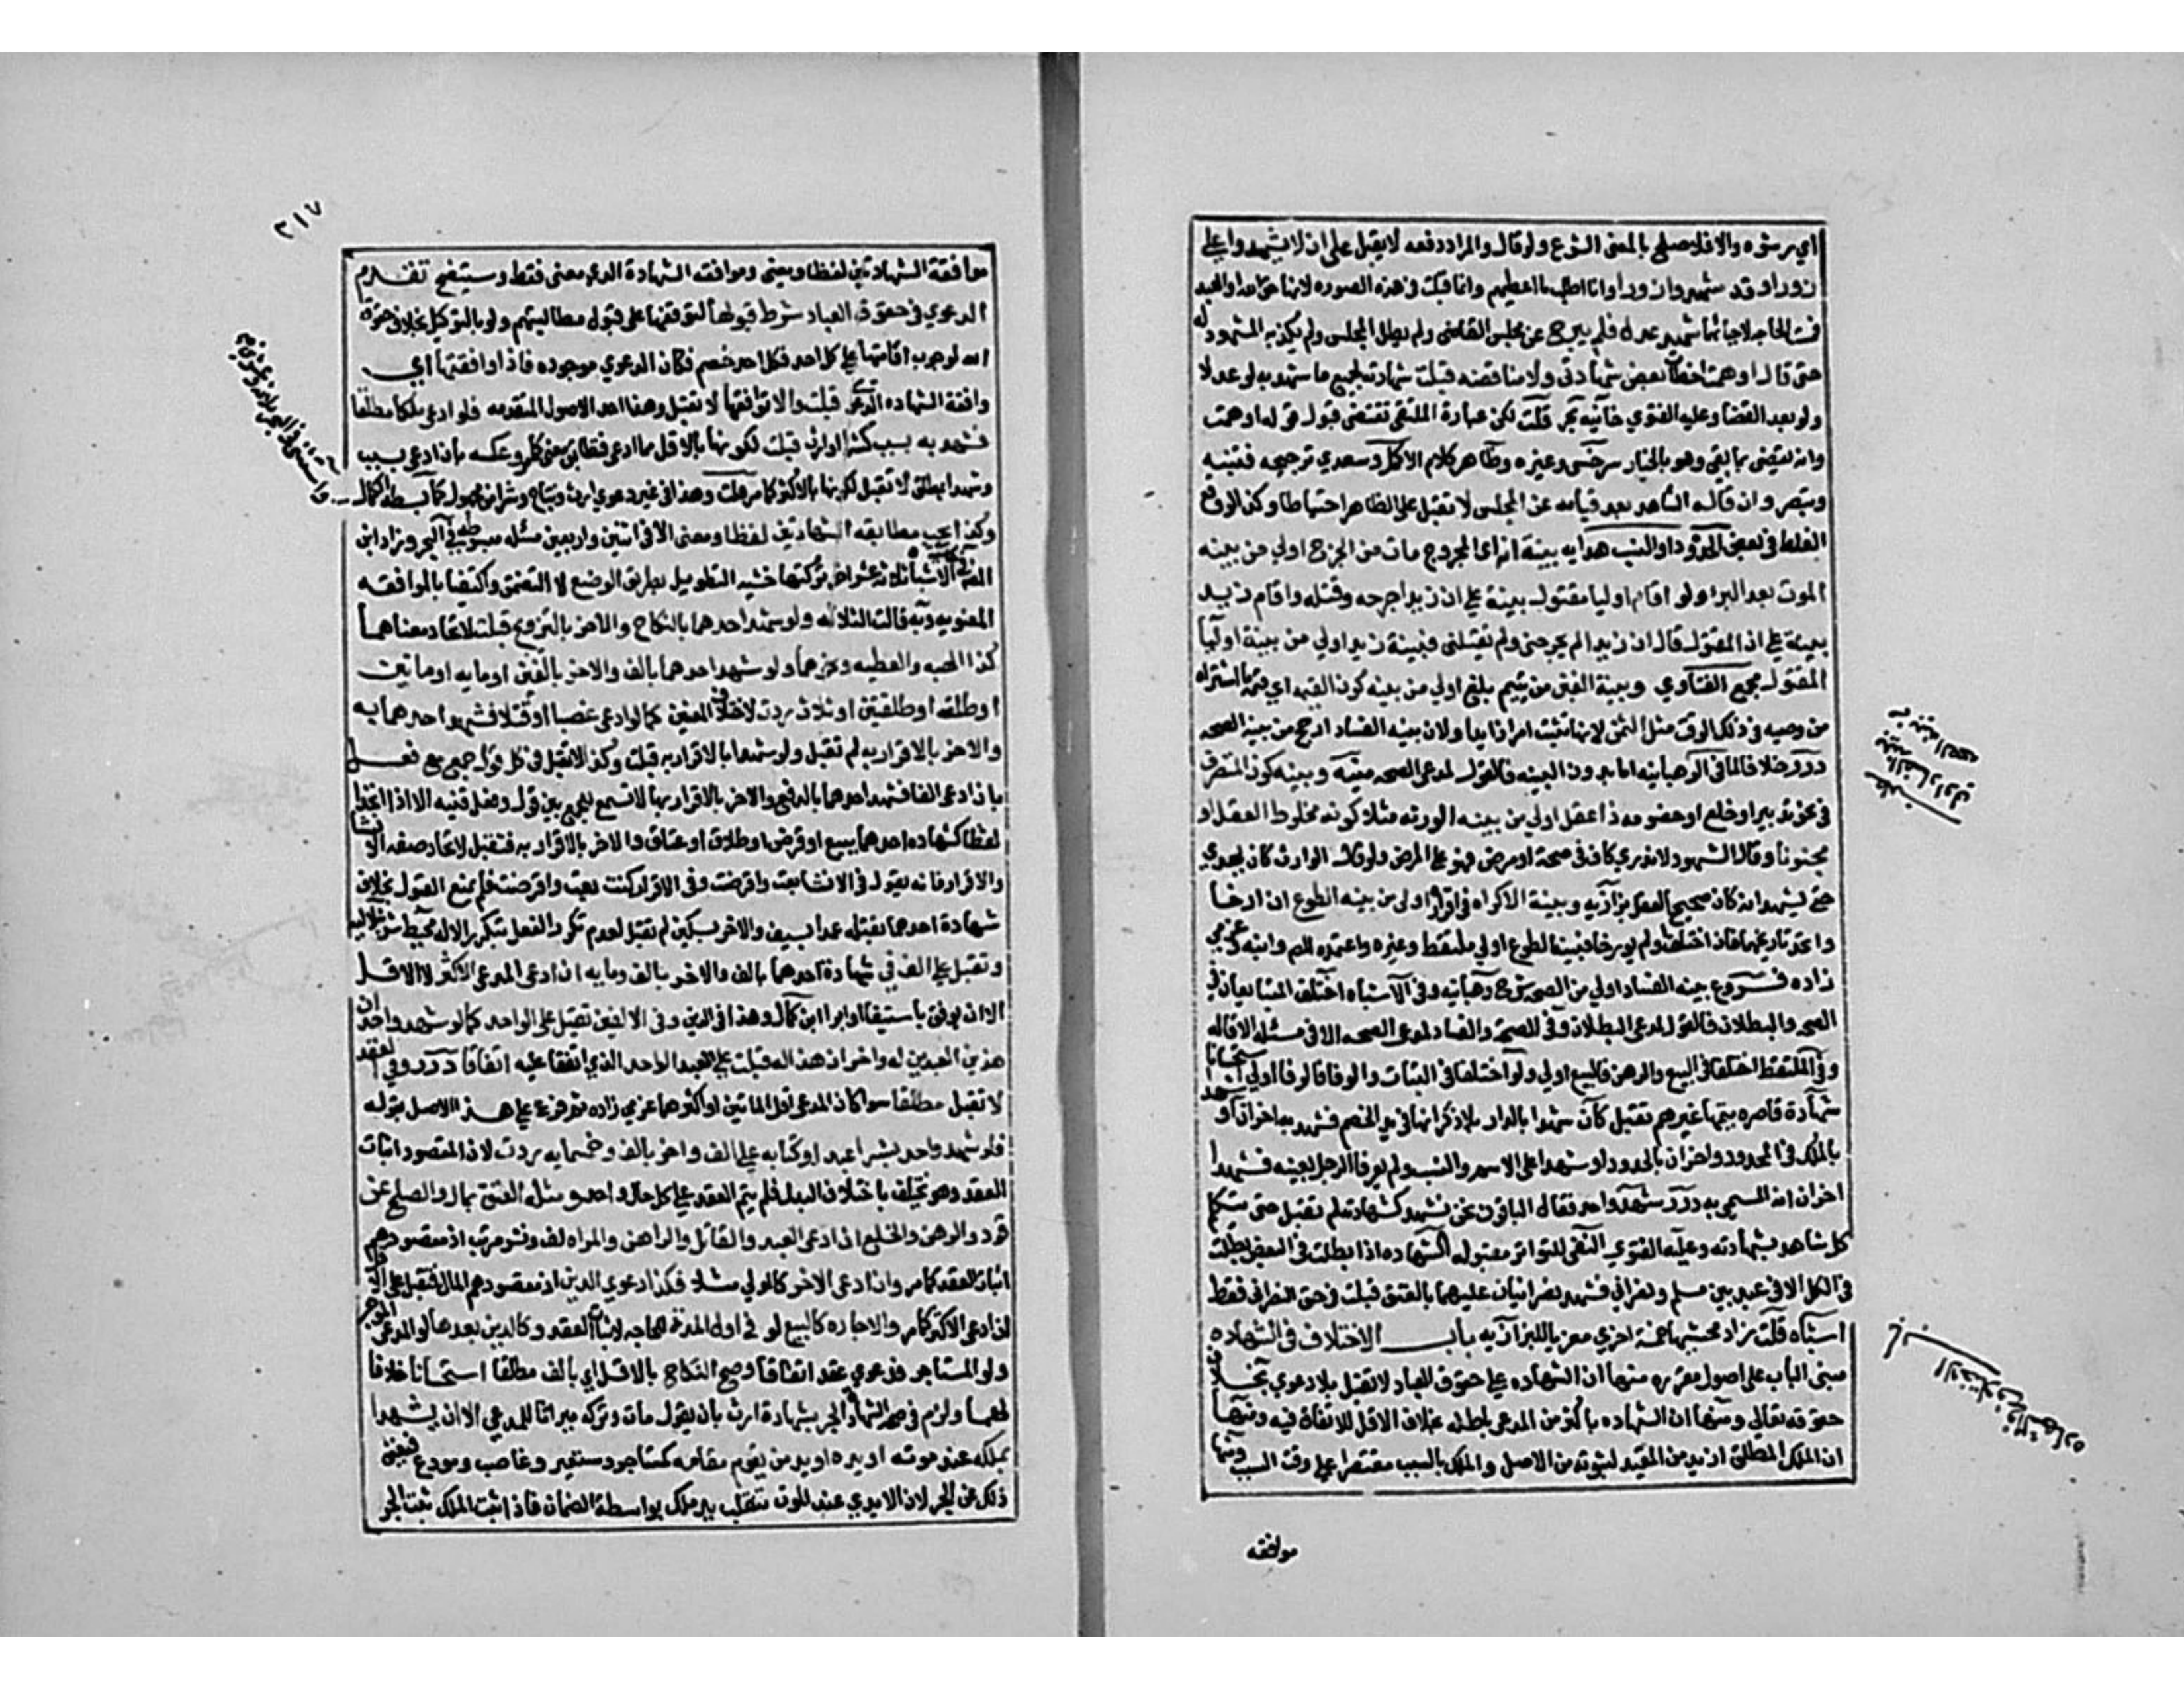 اي رشوه والا فلا صلح بالمعنى الشرع ولو قال والمراد دفعه لا يقبل على ان لا يشهدوا علي
زورا وقد شهدوا زورا وانا اطلب ما اعطيتهم وانما قبلت في هذه الصوره لانها حق الله او العبد
فمست الحاجه لاحيائها شهد عدل فلم يبرح عن مجلس القاضي ولم يطل المجلس ولم يكذبه المشهود له
حتى قال اوهمت اخطات بعض شهادتي ولا مناقضه قبلت شهادته بجميع ما شهد به لو عدلا
ولو بعد القضا وعليه الفتوي خانيه بحر قلت لكن عبارة الملتقى تقتضي قبول قوله اوهمت
وانه يقضى بما بقي وهو مختار سرخسي وغيره وظاهر كلام الاكمل وسعدي ترجيحه فتنبه
وتبصر وان قاله الشاهد بعد قيامه عن المجلس لا تقبل على الظاهر احتياطا وكذا لو وقع
الغلط في بعض الحدود او النسب هدايه بينة انه اي المجروح مات من الجرح اولي من بينه
الموت بعد البرا ولو اقام اوليا مقتول بينة على ان زيدا جرحه وقتله واقام زيد
بينة على ان المقتول قال ان زيدا لم يجرحني ولم يقتلني فبينة زيد اولي من بينة اوليا
المقتول مجمع الفتاوي وبينة الغبن من يتيم بلغ اولي من بينه كون القيمه اي قيمة ما اشتراه
من وصيه في ذلك الوقت مثل الثمن لانها تثبت امرا زايدا ولان بينه الفساد ارجح من بينة الصحه
درر خلافا لما في الوهبانيه اما بدون البينه فالقول لمدعي الصحه منيه وبينه كون المتصرف
في نحو تدبير او خلع او خصومه ذا عقل اولي من بينه الورثه مثلا كونه مخلوط العقل او
مجنونا وقال الشهود لا ندري كان في صحة او مرض فهو على المرض ولو قال الوارث كان يهذي
حتى يشهدا انه كان صحيح العقل بزازيه وبينة الاكراه في اقراره اولى من بينه الطوع ان ارخا
واتحد تاريخهما فان اختلفا او لم يورخا فبينة الطوع اولي ملتقط وغيره واعتمده المصنف وابنه وعزمي
زاده فروع بينه الفساد اولي من الصحه شرح وهبانيه وفي الاشباه اختلف المتبايعان في
الصحه والبطلان فالقول لمدعي البطلان وفي الصحه والفساد لمدعي الصحه الا في مسئلة الاقاله
وفي الملتقط اختلفا في البيع والرهن فالبيع اولي ولو اختلفا في البتات والوفا فالوفا اولي استحسانا
شهادة قاصره يتمها غيرهم تقبل كان شهدا بالدار بلا ذكر انها في يد الخصم فشهد به اخران او شهد
بالملك في المحدود واخران بالحدود او شهدا على الاسم والنسب ولم يعرفا الرجل بعينه فشهدا
اخران انه المسمى به درر شهد واحد فقال الباقون نحن نشهد كشهادته لم تقبل حتى يتكلم
كل شاهد بشهادته وعليه الفتوي النفي المتواتر مقبول الشهاده اذا بطلت في البعض بطلت
في الكل الا في عبد بين مسلم ونصراني فشهد نصرانيان عليهما بالعتق قبلت في حق النصراني فقط
اشباه قلت زاد محشيها خمسة اخري معزيا للبزازيه باب الاختلاف في الشهاده
مبنى الباب على اصول مقرره منها ان الشهاده على حقوق العباد لا تقبل بلا دعوي بخلاف
حقوقه تعالي ومنها ان الشهاده باكثر من المدعي باطله بخلاف الاقل للاتفاق فيه ومنها
ان الملك المطلق ازيد من المقيد لثبوته من الاصل والملك بالسبب مقتصر على وقت السبب ومنها
موافقه
مطلب
بينة الفساد اولى
من بينة الصحه
باب الاختلاف في الشهاده
٢١٧
موافقة الشهادتين لفظا ومعنى وموافقة الشهادة الدعوي معنى فقط وسيتضح تقدم
الدعوي في حقوق العباد شرط قبولها لتوقفها على قبول مطالبتهم ولو بالتوكيل بخلاف حقوق
الله لوجوب اقامتها على كل احد فكل احد خصم فكان الدعوي موجوده فاذا وافقتها اي
وافقة الشهاده الدعوي قبلت والا توافقها لا تقبل وهذا احد الاصول المتقدمه فلو ادعى ملكا مطلقا
فشهد به بسبب كشرا او ارث قبلت لكونها بالاقل مما ادعى فتطابقا معنى كما مر وعكسه بان ادعى بسبب
وشهدا بمطلق لا تقبل لكونها بالاكثر كما مر قلت وهذا في غير دعوي ارث ونتاج وشرا من مجهول كما بسطه الكمال
وكذا يجب مطابقة الشهادتين لفظا ومعنى الا في اثنين واربعين مسئله مبسوطه في البحر وزاد ابن
المصنف في حاشيته على الاشباه ثلاثة عشر اخر تركتها خشية التطويل بطريق الوضع لا التضمن واكتفيا بالموافقه
المعنويه وبه قالت الثلاثه ولو شهد احدهما بالنكاح والاخر بالتزويج قبلت لاتحاد معناهما
كذا الهبه والعطيه ونحوهما ولو شهد احدهما بالف والاخر بالفين او مايه او ماتين
او طلقه او طلقتين او ثلاث ردت لاختلاف المعنيين كما لو ادعى غصبا او قتلا فشهد احدهما به
والاخر بالاقرار به لم تقبل ولو شهدا بالاقرار به قبلت وكذا لا تقبل في كل قول جمع مع فعل
بان ادعى الفا فشهد احدهما بالدفع والاخر بالاقرار بها لا تسمع للجمع بين قول وفعل قنيه الا اذا اتحدا
لفظا كشهادة احدهما ببيع او قرض او طلاق او عتاق والاخر بالاقرار به فتقبل لاتحاد صيغه الانشا
والاقرار فانه يقول في الانشا بعت واقرضت وفي الاقرار كنت بعت واقرضت فلم يمنع القبول بخلاف
شهادة احدهما بقتله عمدا بسيف والاخر بسكين لم تقبل لعدم تكرر الفعل بتكرر الاله محيط شرنبلاليه
وتقبل على الف في شهادة احدهما بالف والاخر بالف ومايه ان ادعى المدعي الاكثر لا الاقل
الا ان يوفق باستيفا او ابرا ابن كمال وهذا في الدين وفي العين تقبل على الواحد كما لو شهد واحد ان
هذين العبدين له واخر ان هذا له قبلت على العبد الواحد الذي اتفقا عليه اتفاقا درر وفي العقد
لا تقبل مطلقا سوا كان المدعي اقل المالين او اكثرهما عزمي زاده ثم فرع على هذا الاصل بقوله
فلو شهد واحد بشرا عبد او كتابه على الف واخر بالف وخمسمايه ردت لان المقصود اثبات
العقد وهو يختلف باختلاف البدل فلم يتم العقد على كل حال واحد ومثله العتق بمال والصلح عن
قود والرهن والخلع ان ادعى العبد والقاتل والراهن والمراه لف ونشر مرتب اذ مقصودهم
اثبات العقد كما مر وان ادعى الاخر كالمولي مثلا فكذا دعوي الدين اذ مقصودهم المال فتقبل على الاقل
ان ادعى الاكثر كما مر والاجاره كالبيع لو في اول المدة للحاجه لاثبات العقد وكالدين بعدها لو المدعي الموجر
ولو المستاجر فدعوي عقد اتفاقا وصح النكاح بالاقل اي بالف مطلقا استحسانا خلافا
لهما ولزم في صحة الشهادة الجر بشهادة ارث بان يقول مات وتركه ميراثا للمدعي الا ان يشهدا
بملكه عند موته او يده او يد من يقوم مقامه كمستاجر ومستعير وغاصب ومودع فيغني
ذلك عن الجر لان الايدي عند الموت تنقلب يد ملك بواسطة الضمان فاذا ثبت الملك ثبت الجر